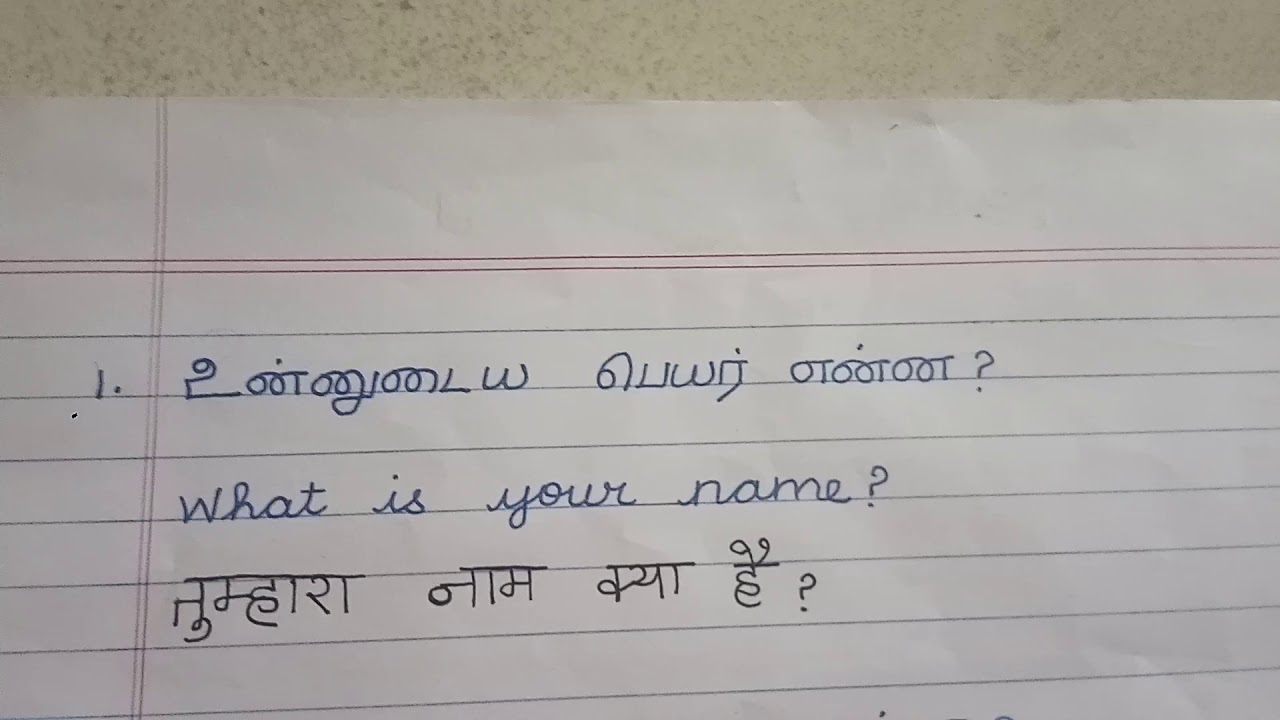 1. உன்னுடைய பெயர் என்ன?
What is your name?
तुम्हारा नाम क्या है?